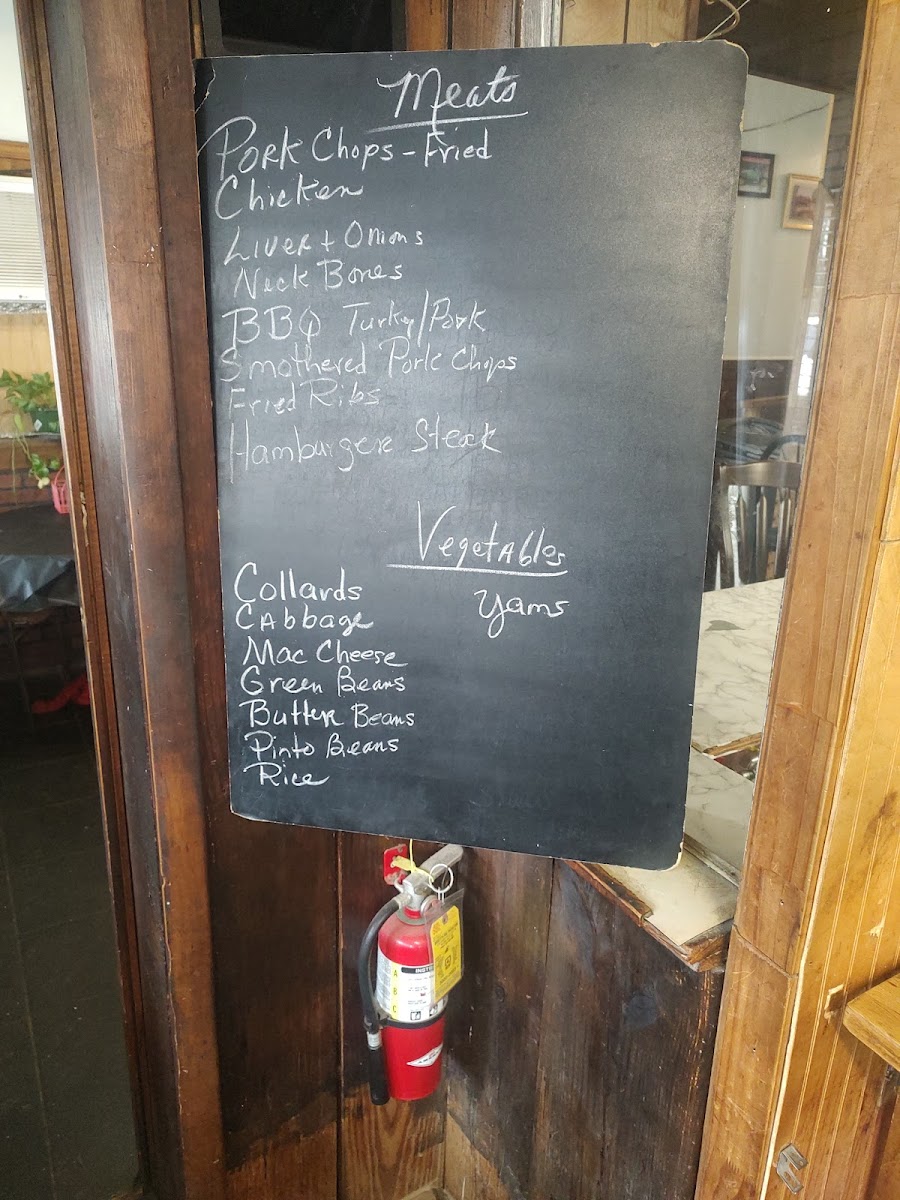 Meats
Pork Chops - Fried
Chicken
Liver + Onions
Neck Bones
BBQ Turkey/Pork
Smothered Pork Chops
Fried Ribs
Hamburger Steak
Vegetables
Collards
Yams
Cabbage
Mac Cheese
Green Beans
Butter Beans
Pinto Beans
Rice
A
B
C